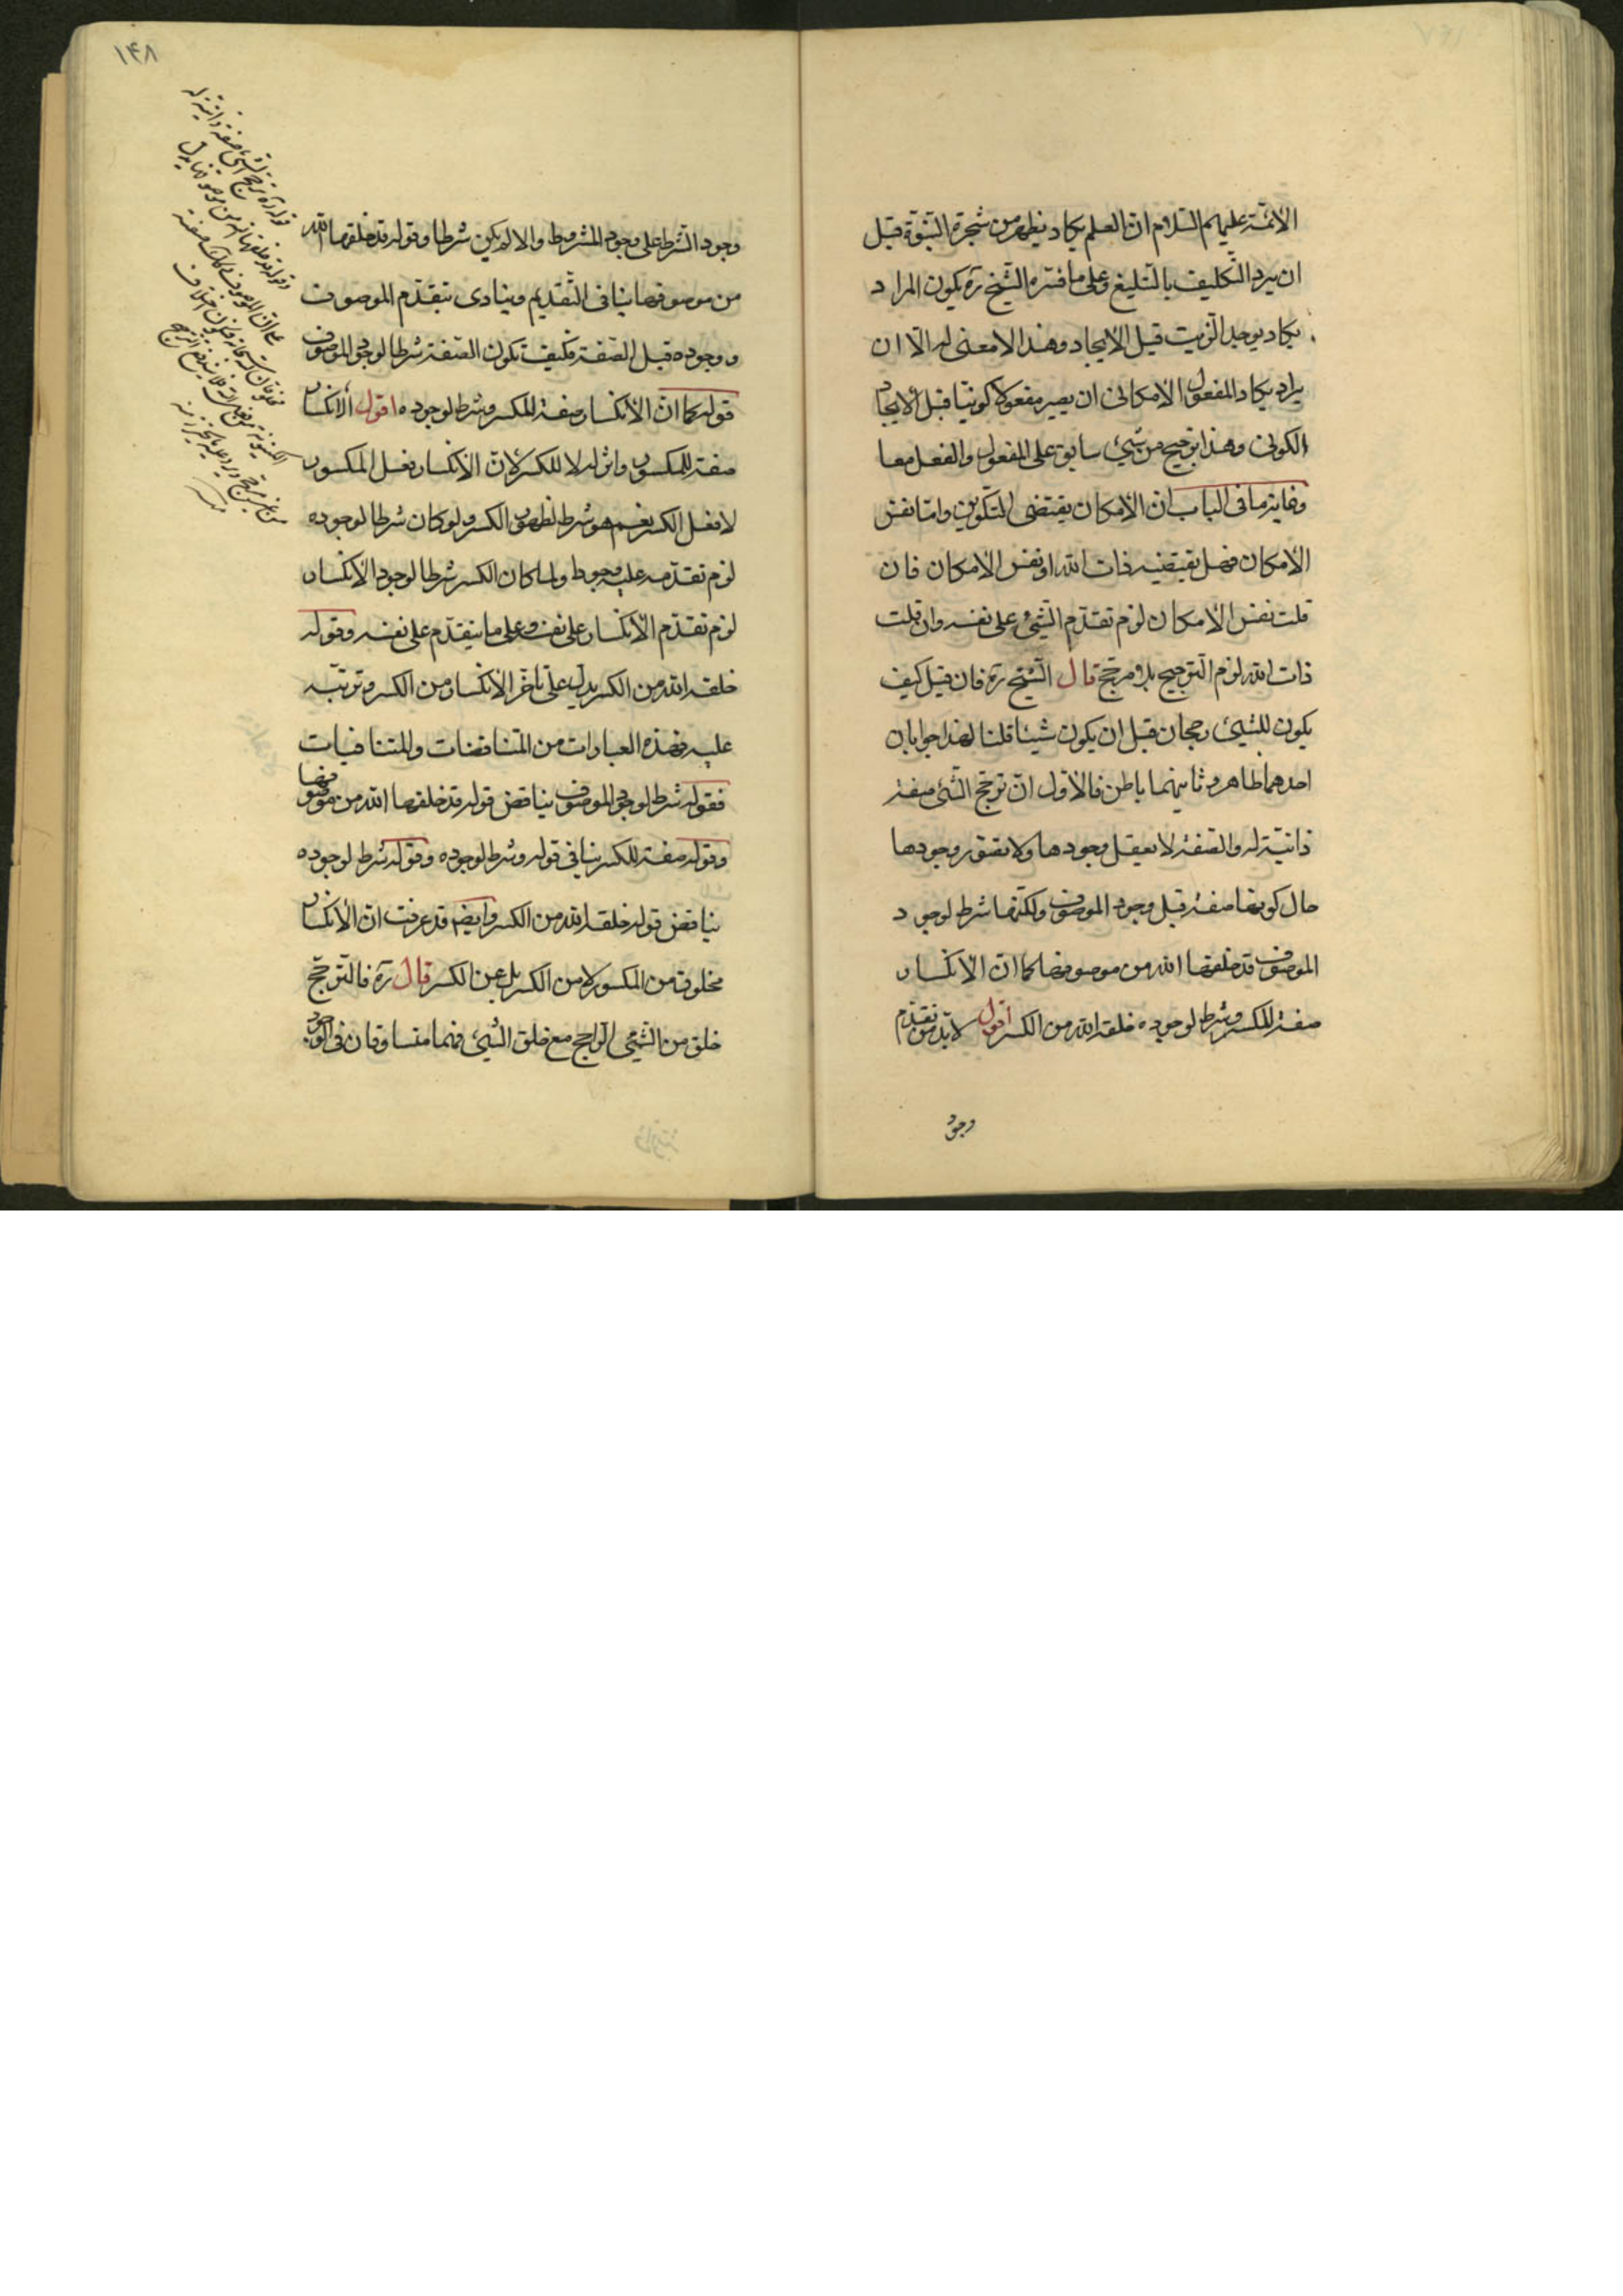 الأئمّة عليهم السّلام ان العلم يكاد يظهر من شجرة النبّوة قبل
ان يرد التكليف بالتبليغ وعلى ما فسّره الشّيخ ره يكون المراد
يكاد يوجد الزيت قبل الايجاد وهذا لا معنى له الّا ان
يراد يكاد المفعول الامكانى ان يصير مفعولا كونيّا قبل الأيجاد
الكونى وهذا ترجيح من شيىء سابق على المفعول والفعل معا
وغاية ما فى الباب ان الأمكان يقتضى التّكوين وامّا نفس
الأمكان فهل يقتضيه ذات الله او نفس الأمكان فان
قلت نفس الأمكان لزم تقدّم الشّيىء على نفسه وان قلت
ذات الله لزم التّرجيح بلا مرجّح قال الشّيخ ره فان قيل كيف
يكون للشيىء رجحان قبل ان يكون شيئا قلنا لهذا جوابان
احدهما ظاهر وثانيهما باطن فالأوّل انّ ترجّح الشّىء صفة
ذاتيّة له والصّفة لا يعقل وجودها ولا تصوّر وجودها
حال كونها صفة قبل وجود الموصوف ولكنّها شرط لوجود
الموصوف قد خلقها الله من موصوفها كما انّ الانكسار
صفة للكسر وشرط لوجوده خلقه الله من الكسر اقول لا بّد من تقدّم
وجود
١٤٨
وجود الشّرط على وجود المشروط والا لم يكن شرطا وقوله قد خلقها الله
من موصوفها ينافى التّقديم وينادى بتقدّم الموصوف
ووجوده قبل الصّفة فكيف تكون الصّفة شرطا لوجود الموصوف
قوله كما انّ الأنكسار صفة للكسر وشرط لوجوده اقول الأنكسار
صفة للمكسور واثر له لا للكسر لأنّ الأنكسار فعل المكسور
لا فعل الكسر نعم هو شرط لظهور الكسر ولو كان شرطا لوجوده
لزم تقدّمه عليه وجودا ولما كان الكسر شرطا لوجود الأنكسار
لزم تقدّم الأنكسار على نفسه وعلى ما يتقدّم على نفسه وقوله
خلقه الله من الكسر يدلّ على تأخّر الأنكسار من الكسر وترتّبه
عليه فهذه العبارات من المتناقضات والمتنافيات
فقوله شرط لوجود الموصوف يناقض قوله قد خلقها الله من موصوفها
وقوله صفة للكسر ينافى قوله وشرط لوجوده وقوله شرط لوجوده
يناقض قوله خلقه الله من الكسر وايضا قد عرفت انّ الأنكسار
مخلوق من المكسور لا من الكسر بل عن الكسر قال ره فالترجّح
خلق من الشّيىء الرّاجح مع خلق الشّيىء فهما متساوقان فى الوجود
قوله ره ترجّح الشّىء صفة ذاتية له